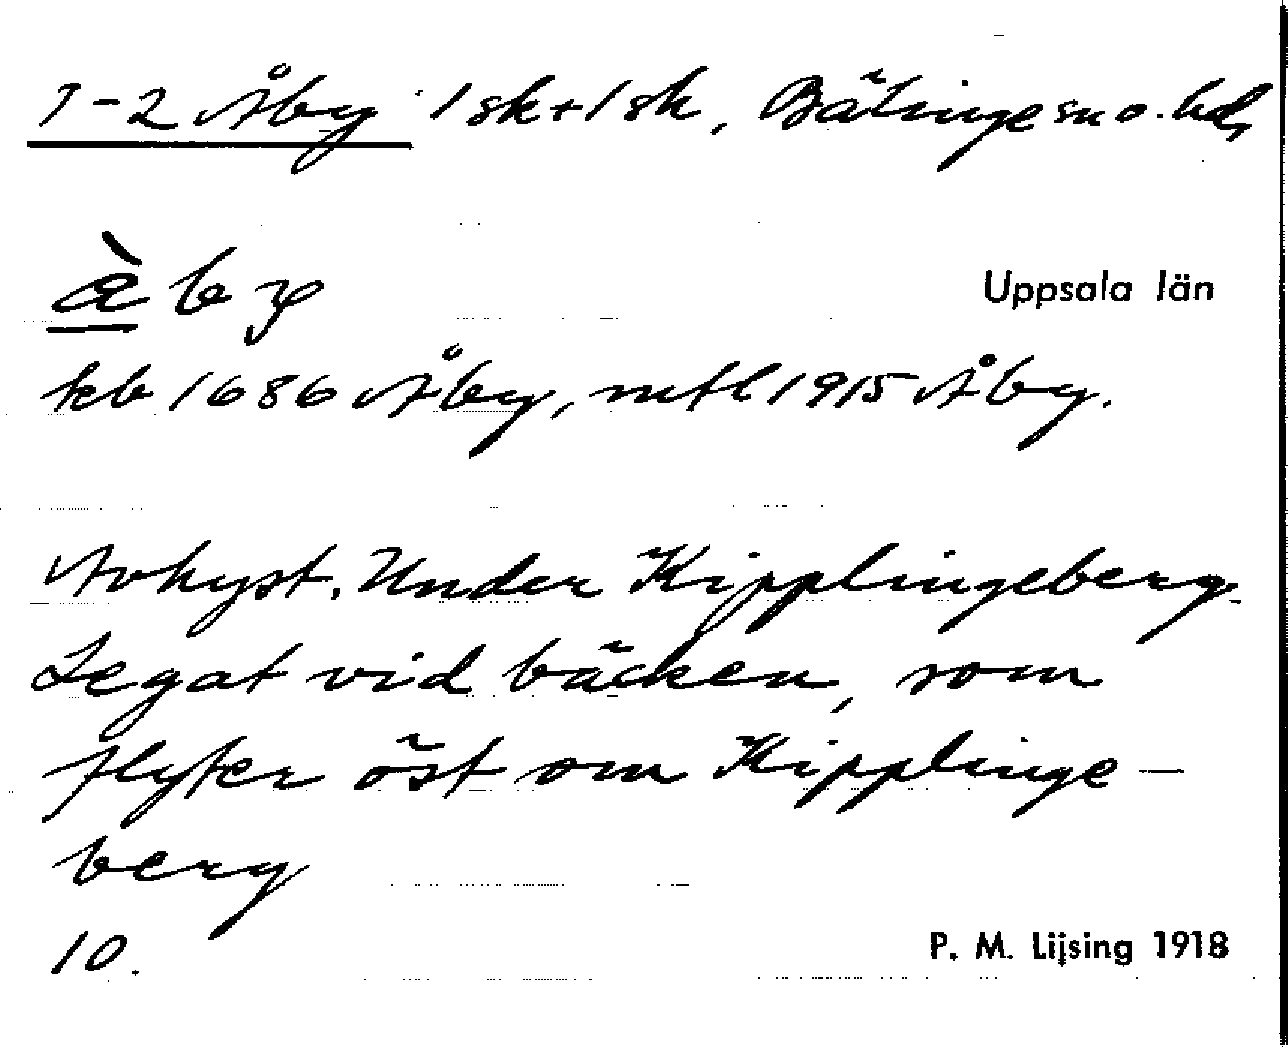 1-2 Åby 1 sk + 1 sk, Bälinge sn o. hd,
àby
Uppsala län
kb 1686 Åby, mtl 1915 Åby.
Avhyst. Under Kipplingeberg.
Legat vid bäcken, som
flyter öst om Kipplinge-
berg
10.
P. M. Lijsing 1918